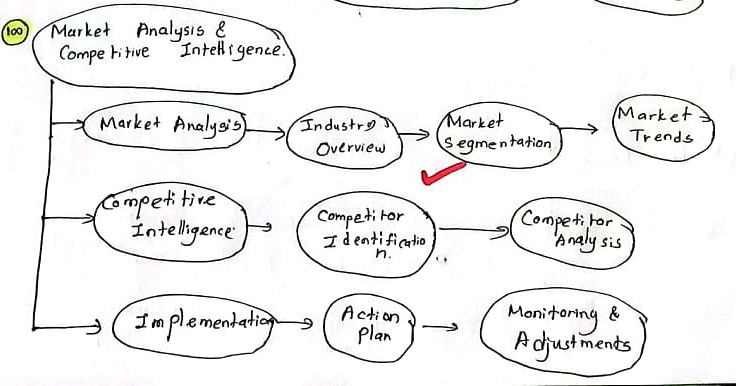 100
Market Analysis &
Competitive Intelligence.
Market Analysis
Industry
Overview
Market
Segmentation
Market
Trends
Competitive
Intelligence
Competitor
Identificatio
n.
Competitor
Analysis
Implementation
Action
Plan
Monitoring &
Adjustments